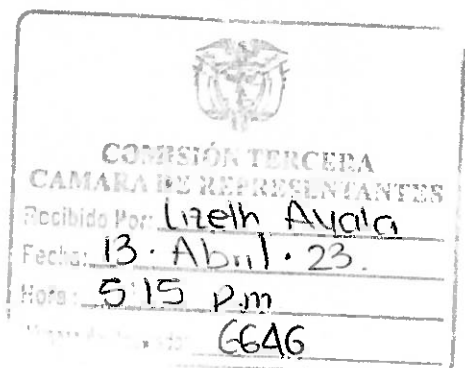 COMISIÓN TERCERA
CAMARA DE REPRESENTANTES
Recibido Por: Lizeth Ayala
Fecha: 13 · Abril · 23.
Hora: 5 15 p.m
6646